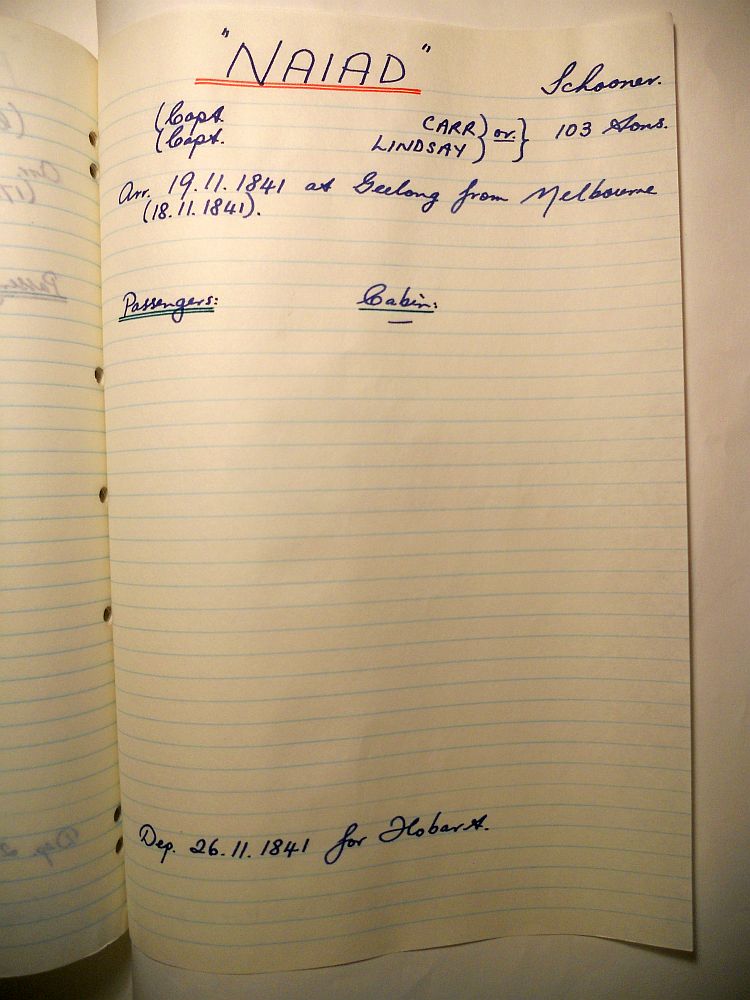 "NAIAD"
Schooner.
(Capt. CARR) or } 103 Tons.
(Capt. LINDSAY)
Arr. 19.11.1841 at Geelong from Melbourne
(18.11.1841).
Passengers: Cabin:
Dep. 26.11.1841 for Hobart.